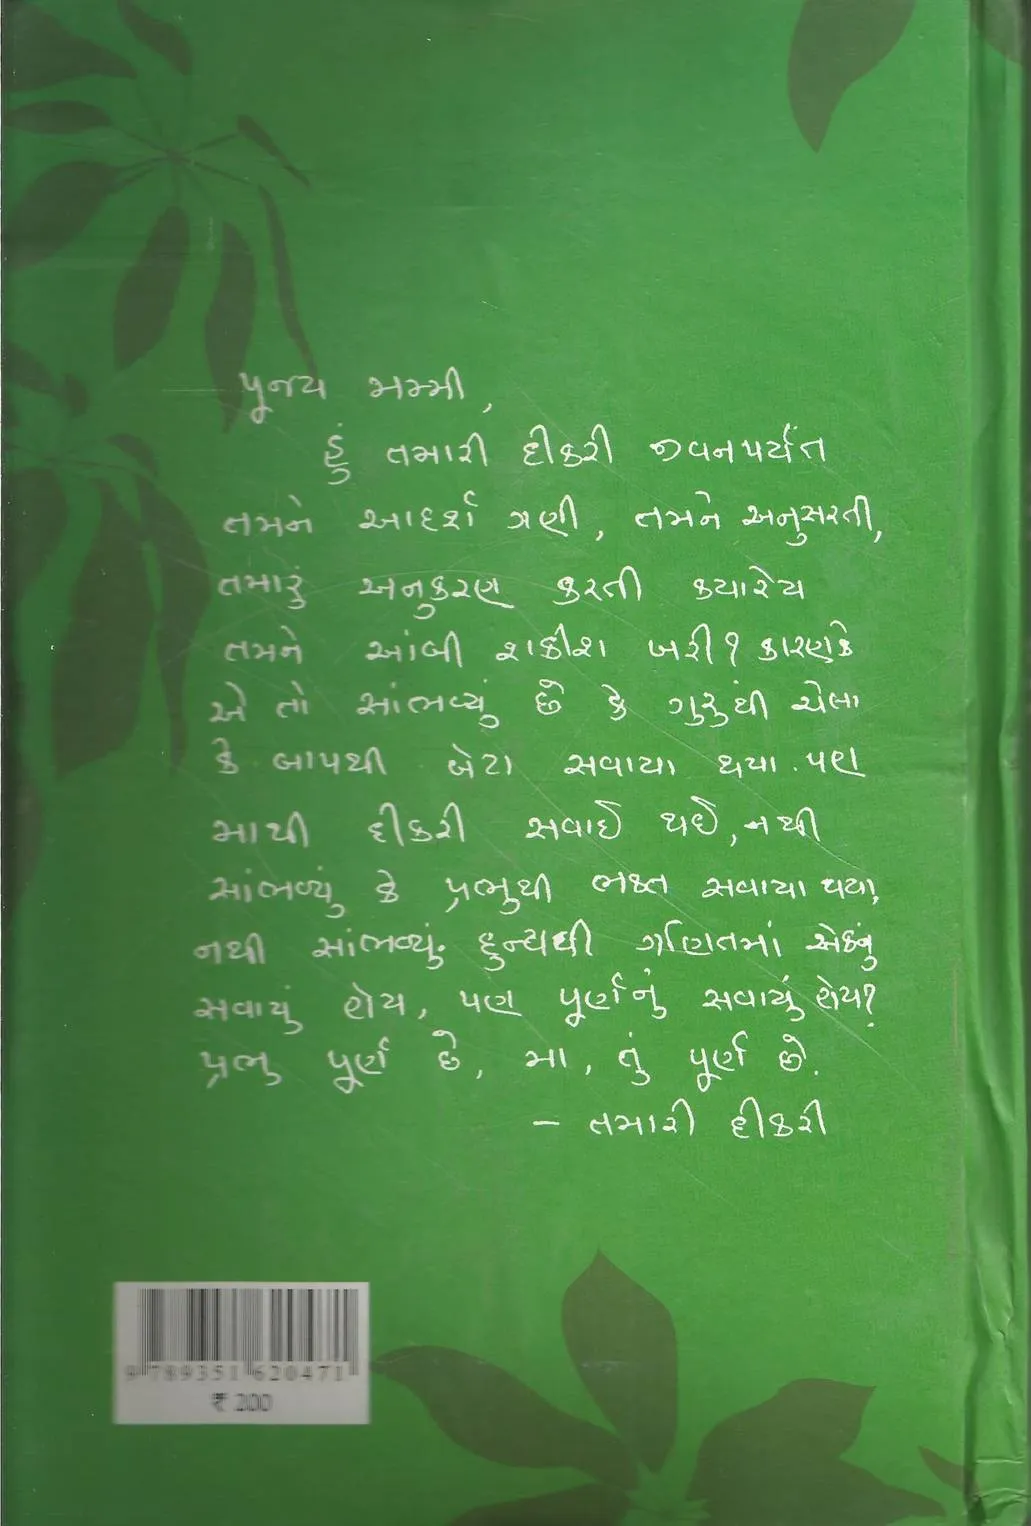 પૂજ્ય મમ્મી,
હું તમારી દીકરી જીવનપર્યંત
તમને આદર્શ ગણી, તમને અનુસરતી,
તમારું અનુકરણ કરતી ક્યારેય
તમને આંબી શકીશ ખરી? કારણકે
એ તો સાંભળ્યું છે કે ગુરુથી ચેલા
કે બાપથી બેટા સવાયા થયા. પણ
માથી દીકરી સવાઈ થઈ, નથી
સાંભળ્યું કે પ્રભુથી ભક્ત સવાયા થયા,
નથી સાંભળ્યું. દુન્યવી ગણિતમાં એકનું
સવાયું હોય, પણ પૂર્ણનું સવાયું હોય?
પ્રભુ પૂર્ણ છે, મા, તું પૂર્ણ છે.
– તમારી દીકરી
9 789351 620471
₹ 200